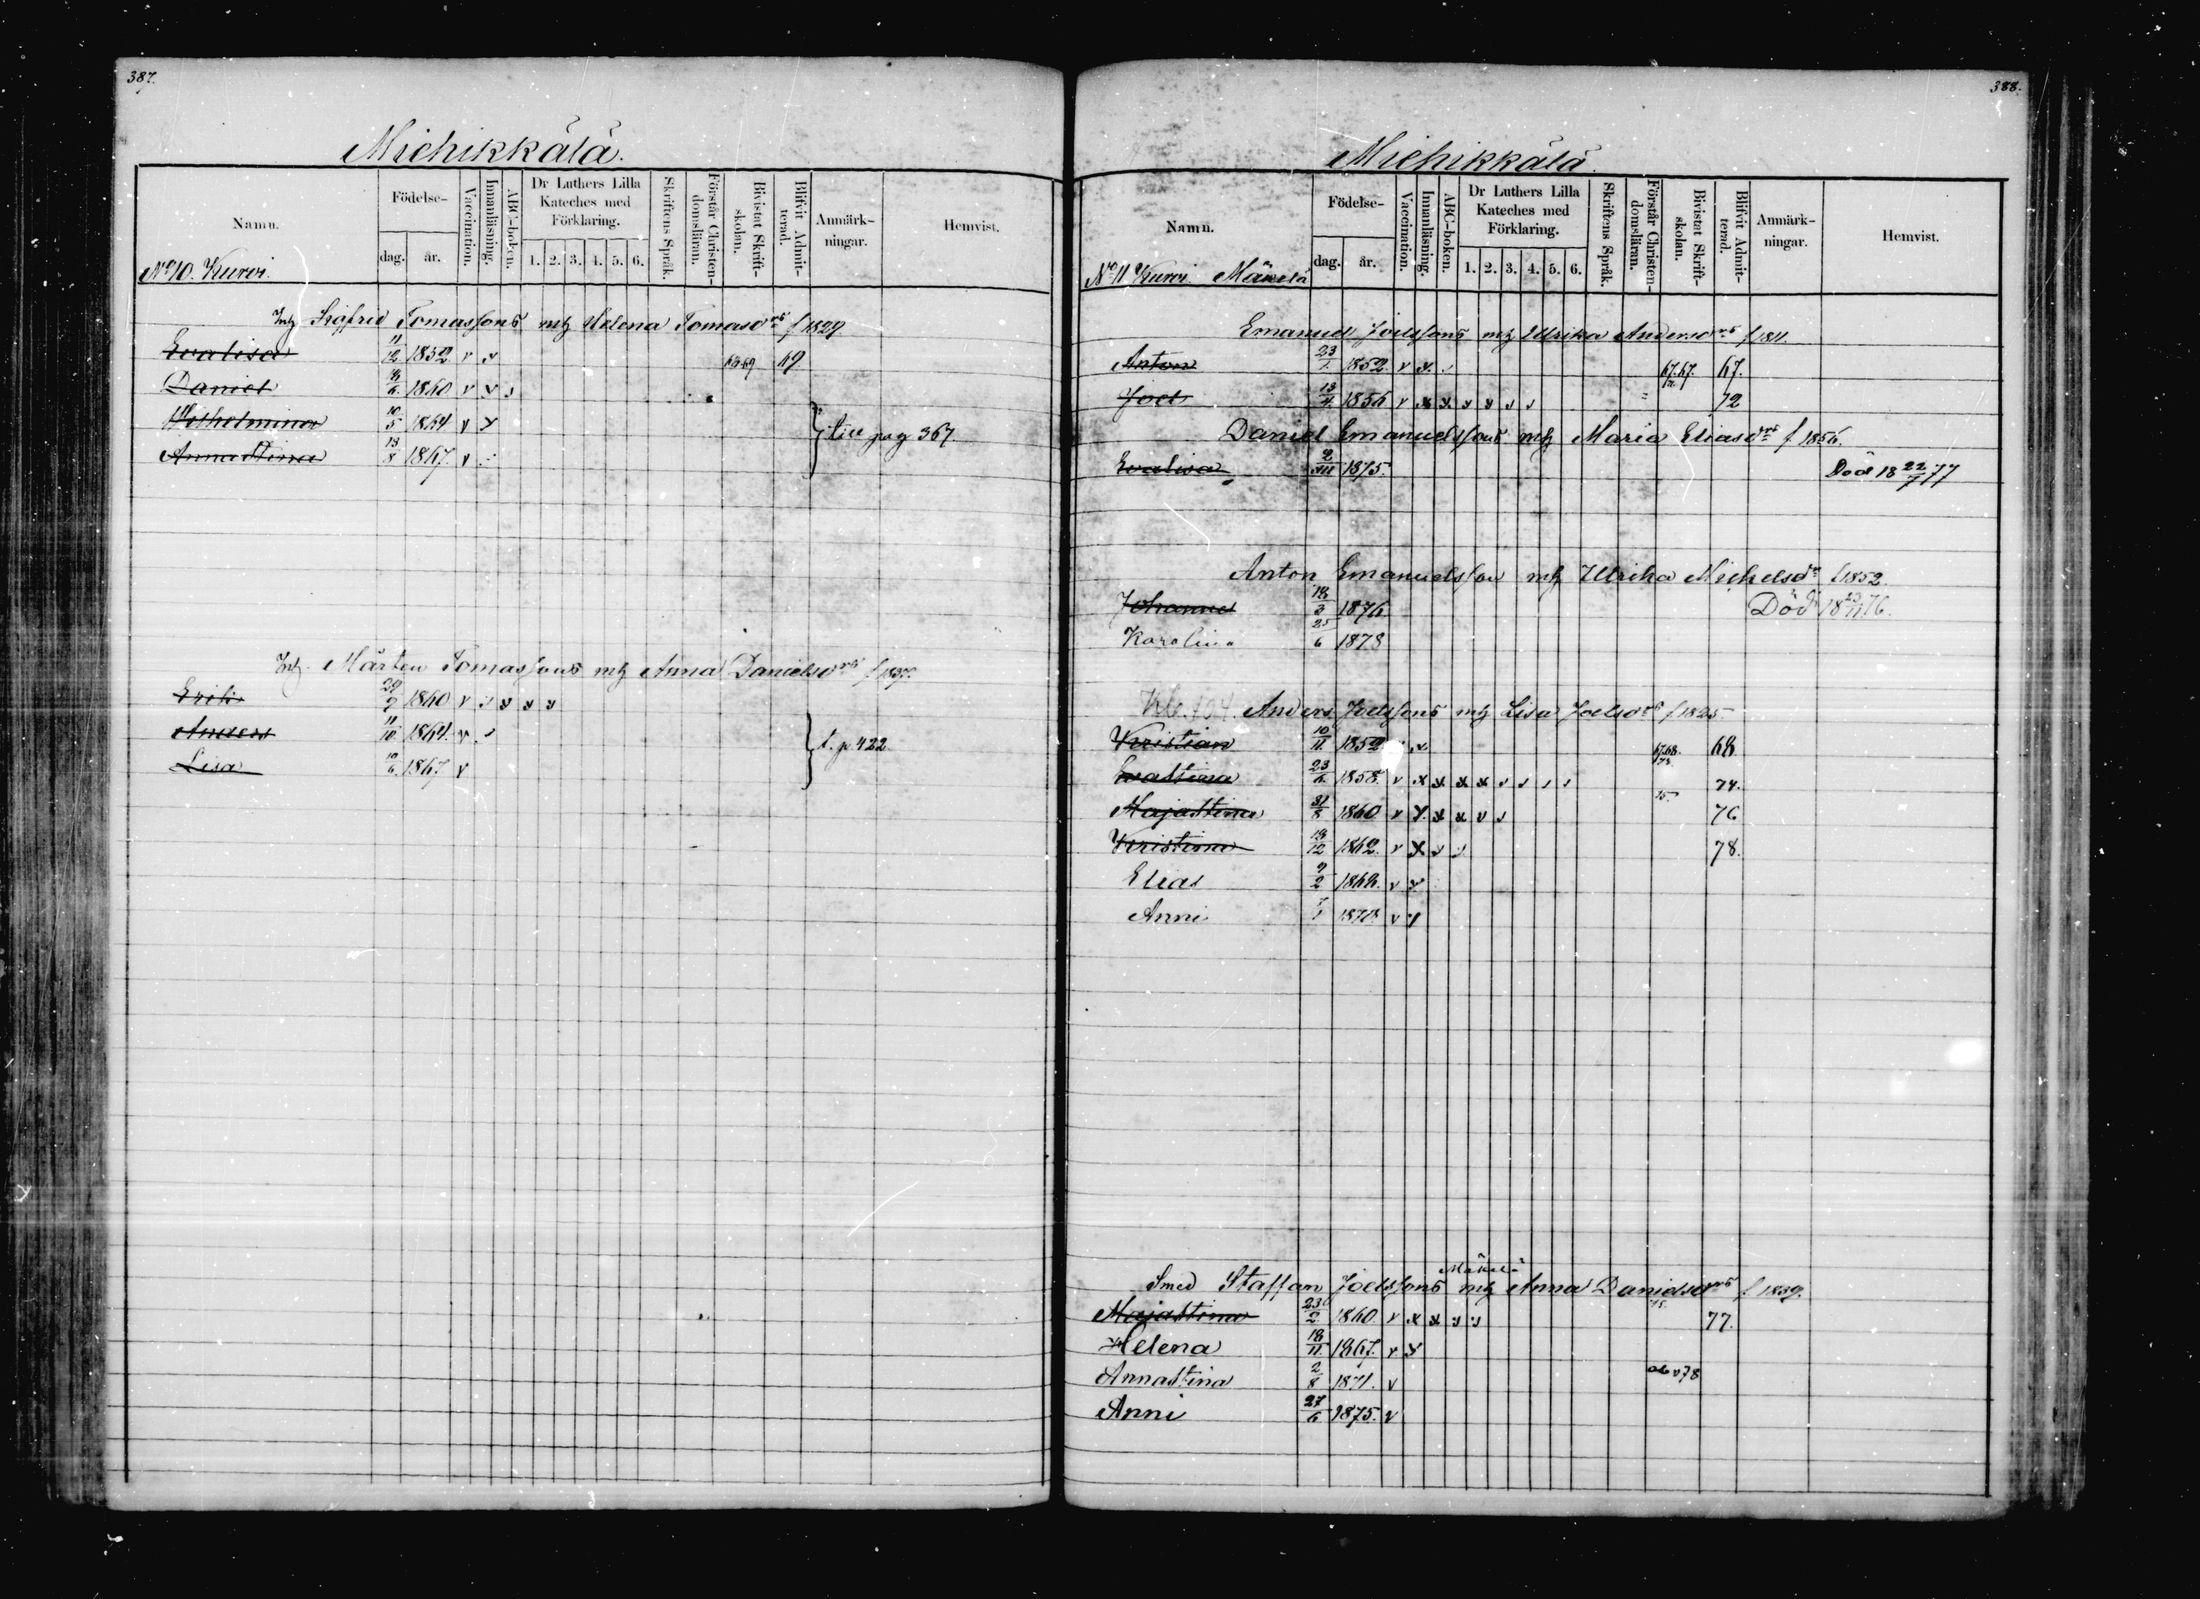 387.
Michikkälä.
Namn.
Födelse-
dag.
år.
Vaccination.
Innanläsning.
ABC-boken.
Dr Luthers Lilla
Kateches med
Förklaring.
1. 2. 3. 4. 5. 6.
Skriftens Språk.
Förstår Christen-
domsläran.
Bivistat Skrift-
skolan.
Blifvit Admit-
terad.
Anmärk-
ningar.
Hemvist.
No 10. Kurvi.
Inh Sigfrid Tomassons mh Helena Tomasdrs f 1829
Evalisa 11/12 1852. v v 68.69 69
Daniel 1860 v v
Wilhelmina 10/5 1864 v v
till pag 367.
Annastina 13/8 1867. v
Inh. Mårten Tomassons mh Anna Danielsdrs
Erik 1860 v
Anders 11/10 1864. v
t. p 422
Lisa 10/6 1867 v
388.
Michikkälä.
Namn.
Födelse-
dag.
år.
Vaccination.
Innanläsning.
ABC-boken.
Dr Luthers Lilla
Kateches med
Förklaring.
1. 2. 3. 4. 5. 6.
Skriftens Språk.
Förstår Christen-
domsläran.
Bivistat Skrift-
skolan.
Blifvit Admit-
terad.
Anmärk-
ningar.
Hemvist.
No 11 Kurvi. Mäkelä
Emanuel Joelssons mh Ulrika Andersdrs f 1811.
Anton 23/1 1852. v 67. 67. 67.
Joel 13/4 1856 v x x 72
Daniel Emanuelssons mh Maria Eliasdrs f. 1856.
Evalisa 2/XII 1875. Död 18 22/7 77
Anton Emanuelsson mh Ulrika Michelsdr f 1852.
Johannes 18/3 1876 Död 18 23/11 76.
Karolina 25/6 1878
Anders Joelssons mh Lisa Joelsdrs f 1825
Kristian 10/11 1852 67.68. 68.
Evastina 23/6 1858. v x x x x 74.
Majastina 31/8 1860 v 76
Kristina 18/12 1862. v x 78.
Elias 9/2 1868. v v
Anni v
Mäkelä
Smed Staffan Joelssons mh Anna Danielsdrs f 1839.
Majastina 23/2 1860 v x x 77.
Helena 18/11 1867. v
Annastina 2/8 1871. v
Anni 27/6 1875. v